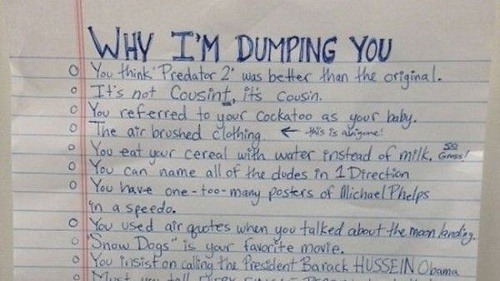 WHY I'M DUMPING YOU
You think 'Predator 2' was better than the original.
It's not Cousint, it's Cousin.
You referred to your cockatoo as your baby.
The air brushed clothing ← this is a biggone!
You eat your cereal with water instead of milk. SO Gross!
You can name all of the dudes in 1Direction
You have one-too-many posters of Michael Phelps
in a speedo.
You used air quotes when you talked about the moon landing.
"Snow Dogs" is your favorite movie.
You insist on calling the President Barack HUSSEIN Obama
Must you tell EVERY SINGLE